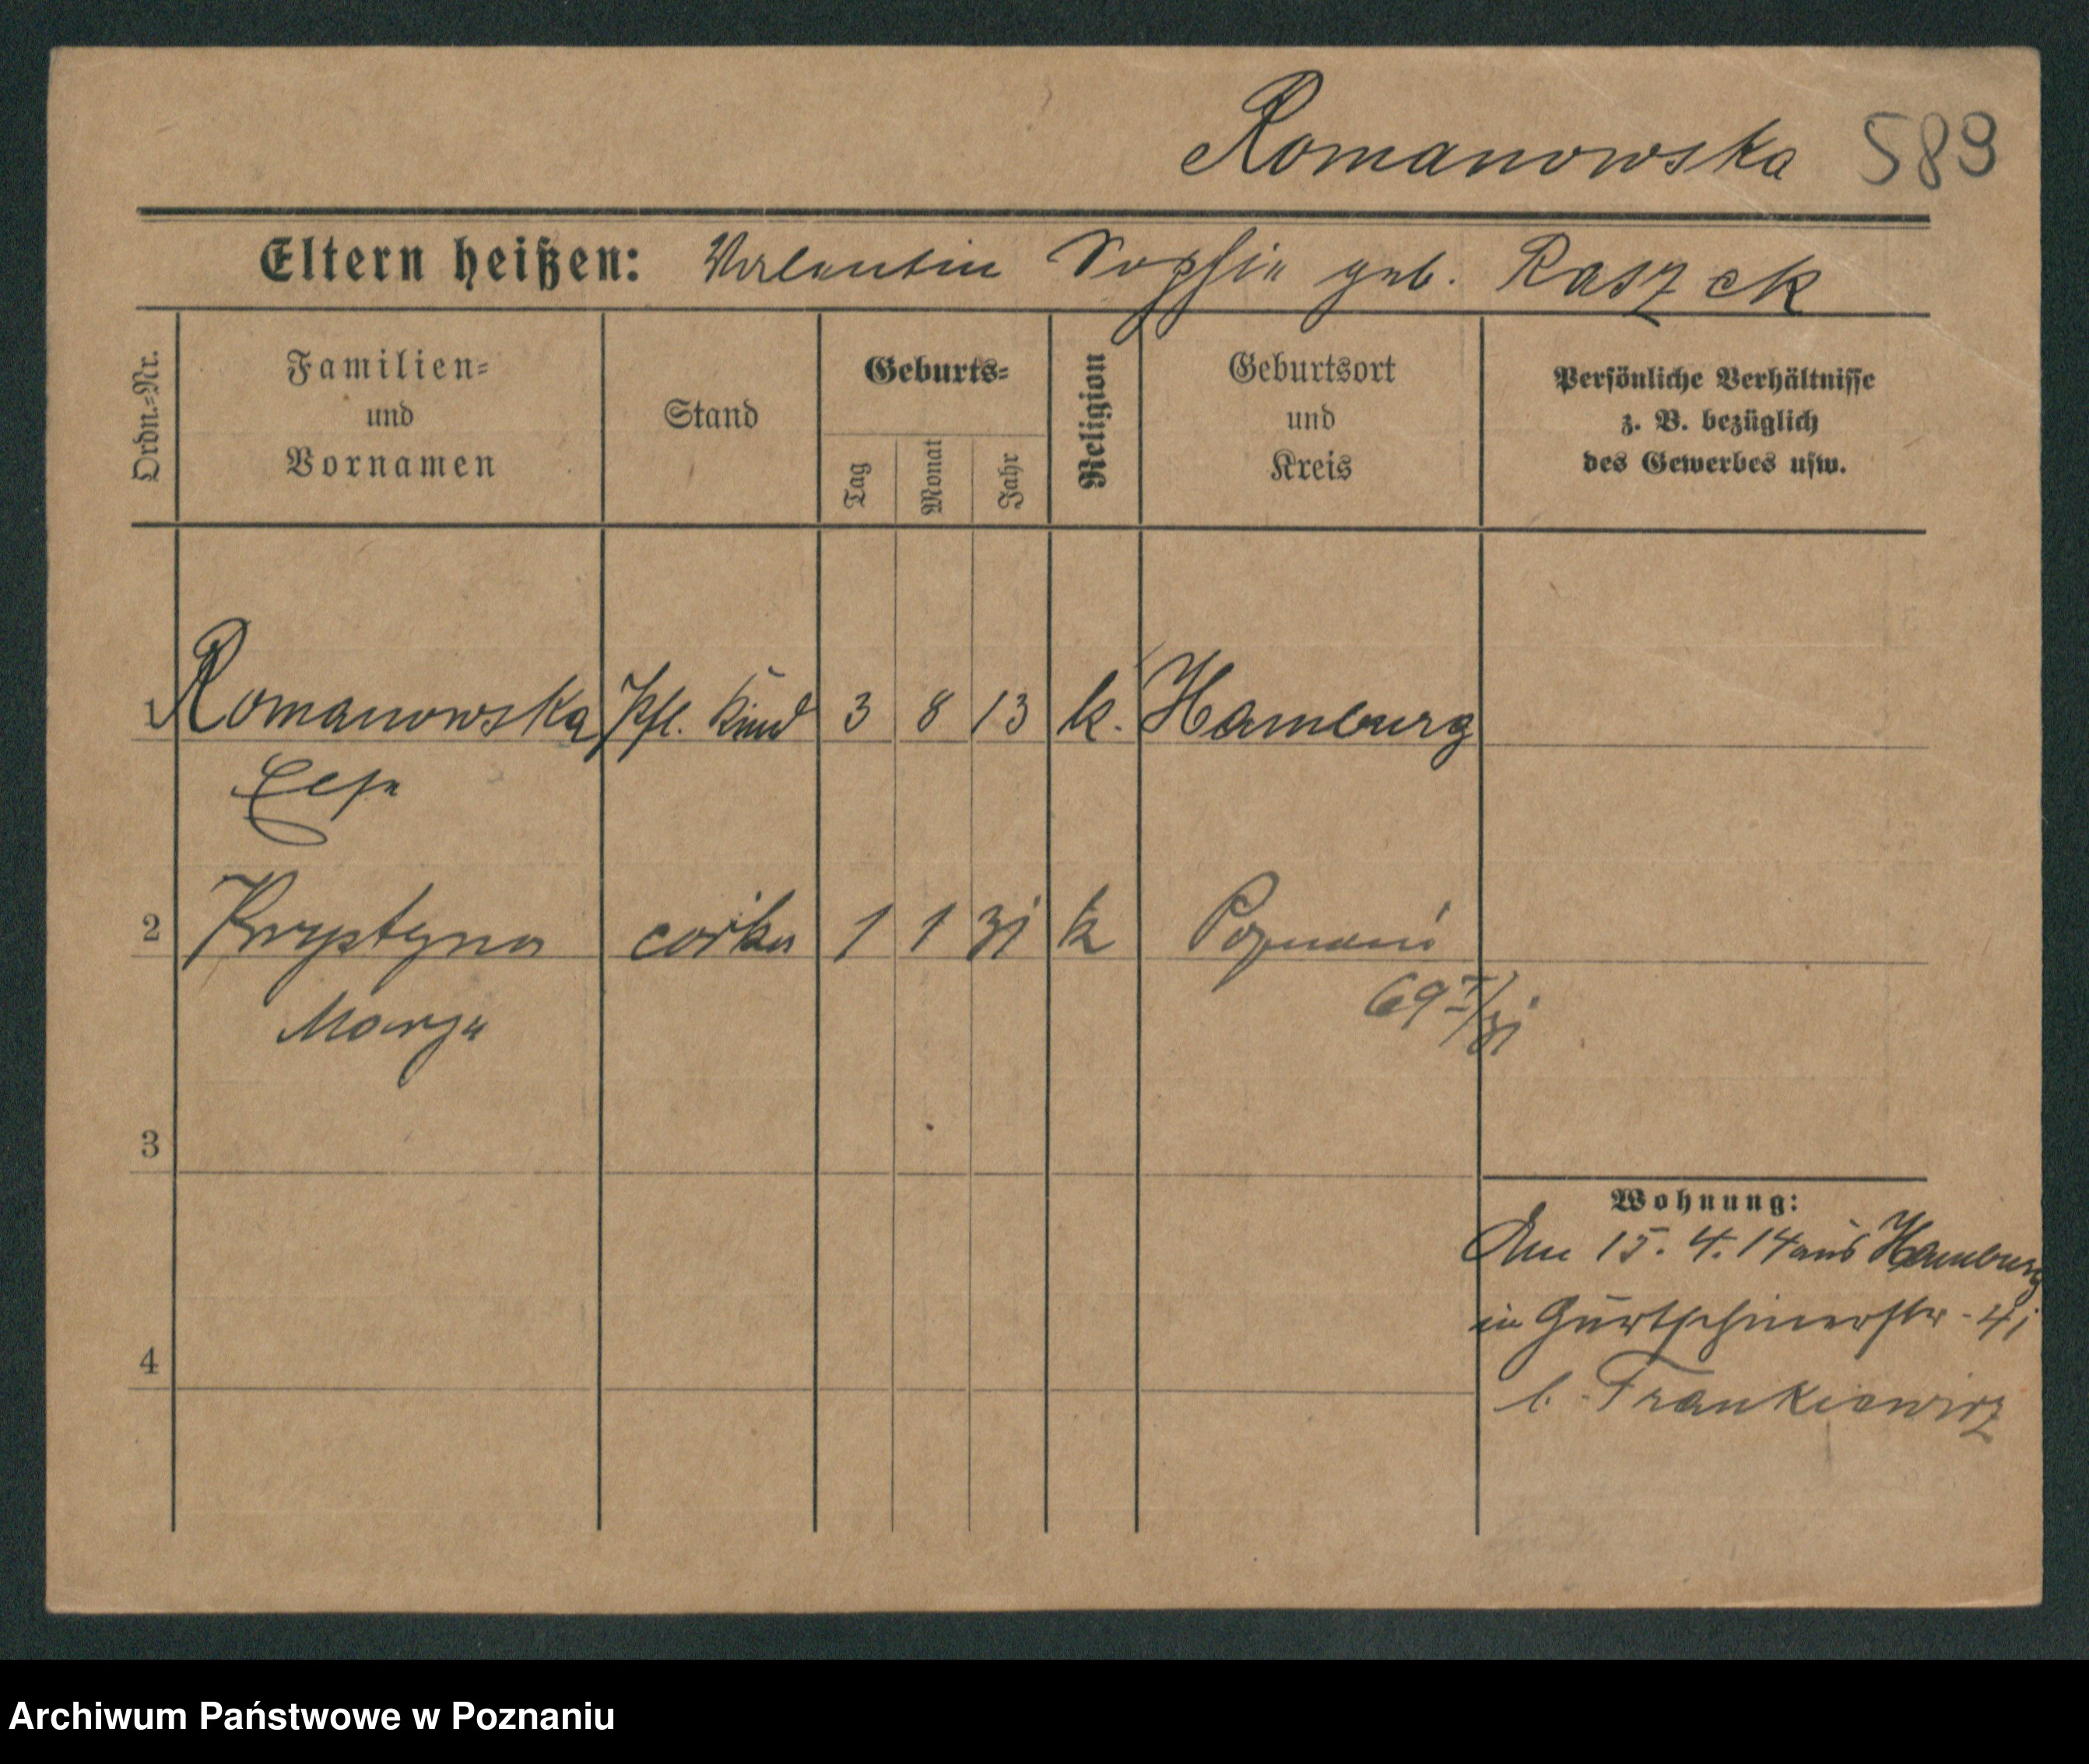 Romanowska 589
Eltern heißen: Valentin Sophie geb. Raszek
Ordn.-Nr.
Familien-
und
Vornamen
Stand
Geburts-
Tag
Monat
Jahr
Religion
Geburtsort
und
Kreis
Persönliche Verhältnisse
z. B. bezüglich
des Gewerbes usw.
1 Romanowska Pfl. Kind 3 8 13 k. Hamburg
2 Krystyna córka 1 1 31 k Poznań
Marja 69 I/31
3
Wohnung:
Am 15. 4. 14 aus Hamburg
in Gurtschinerstr. 41
4
b. Frankiewicz
Archiwum Państwowe w Poznaniu